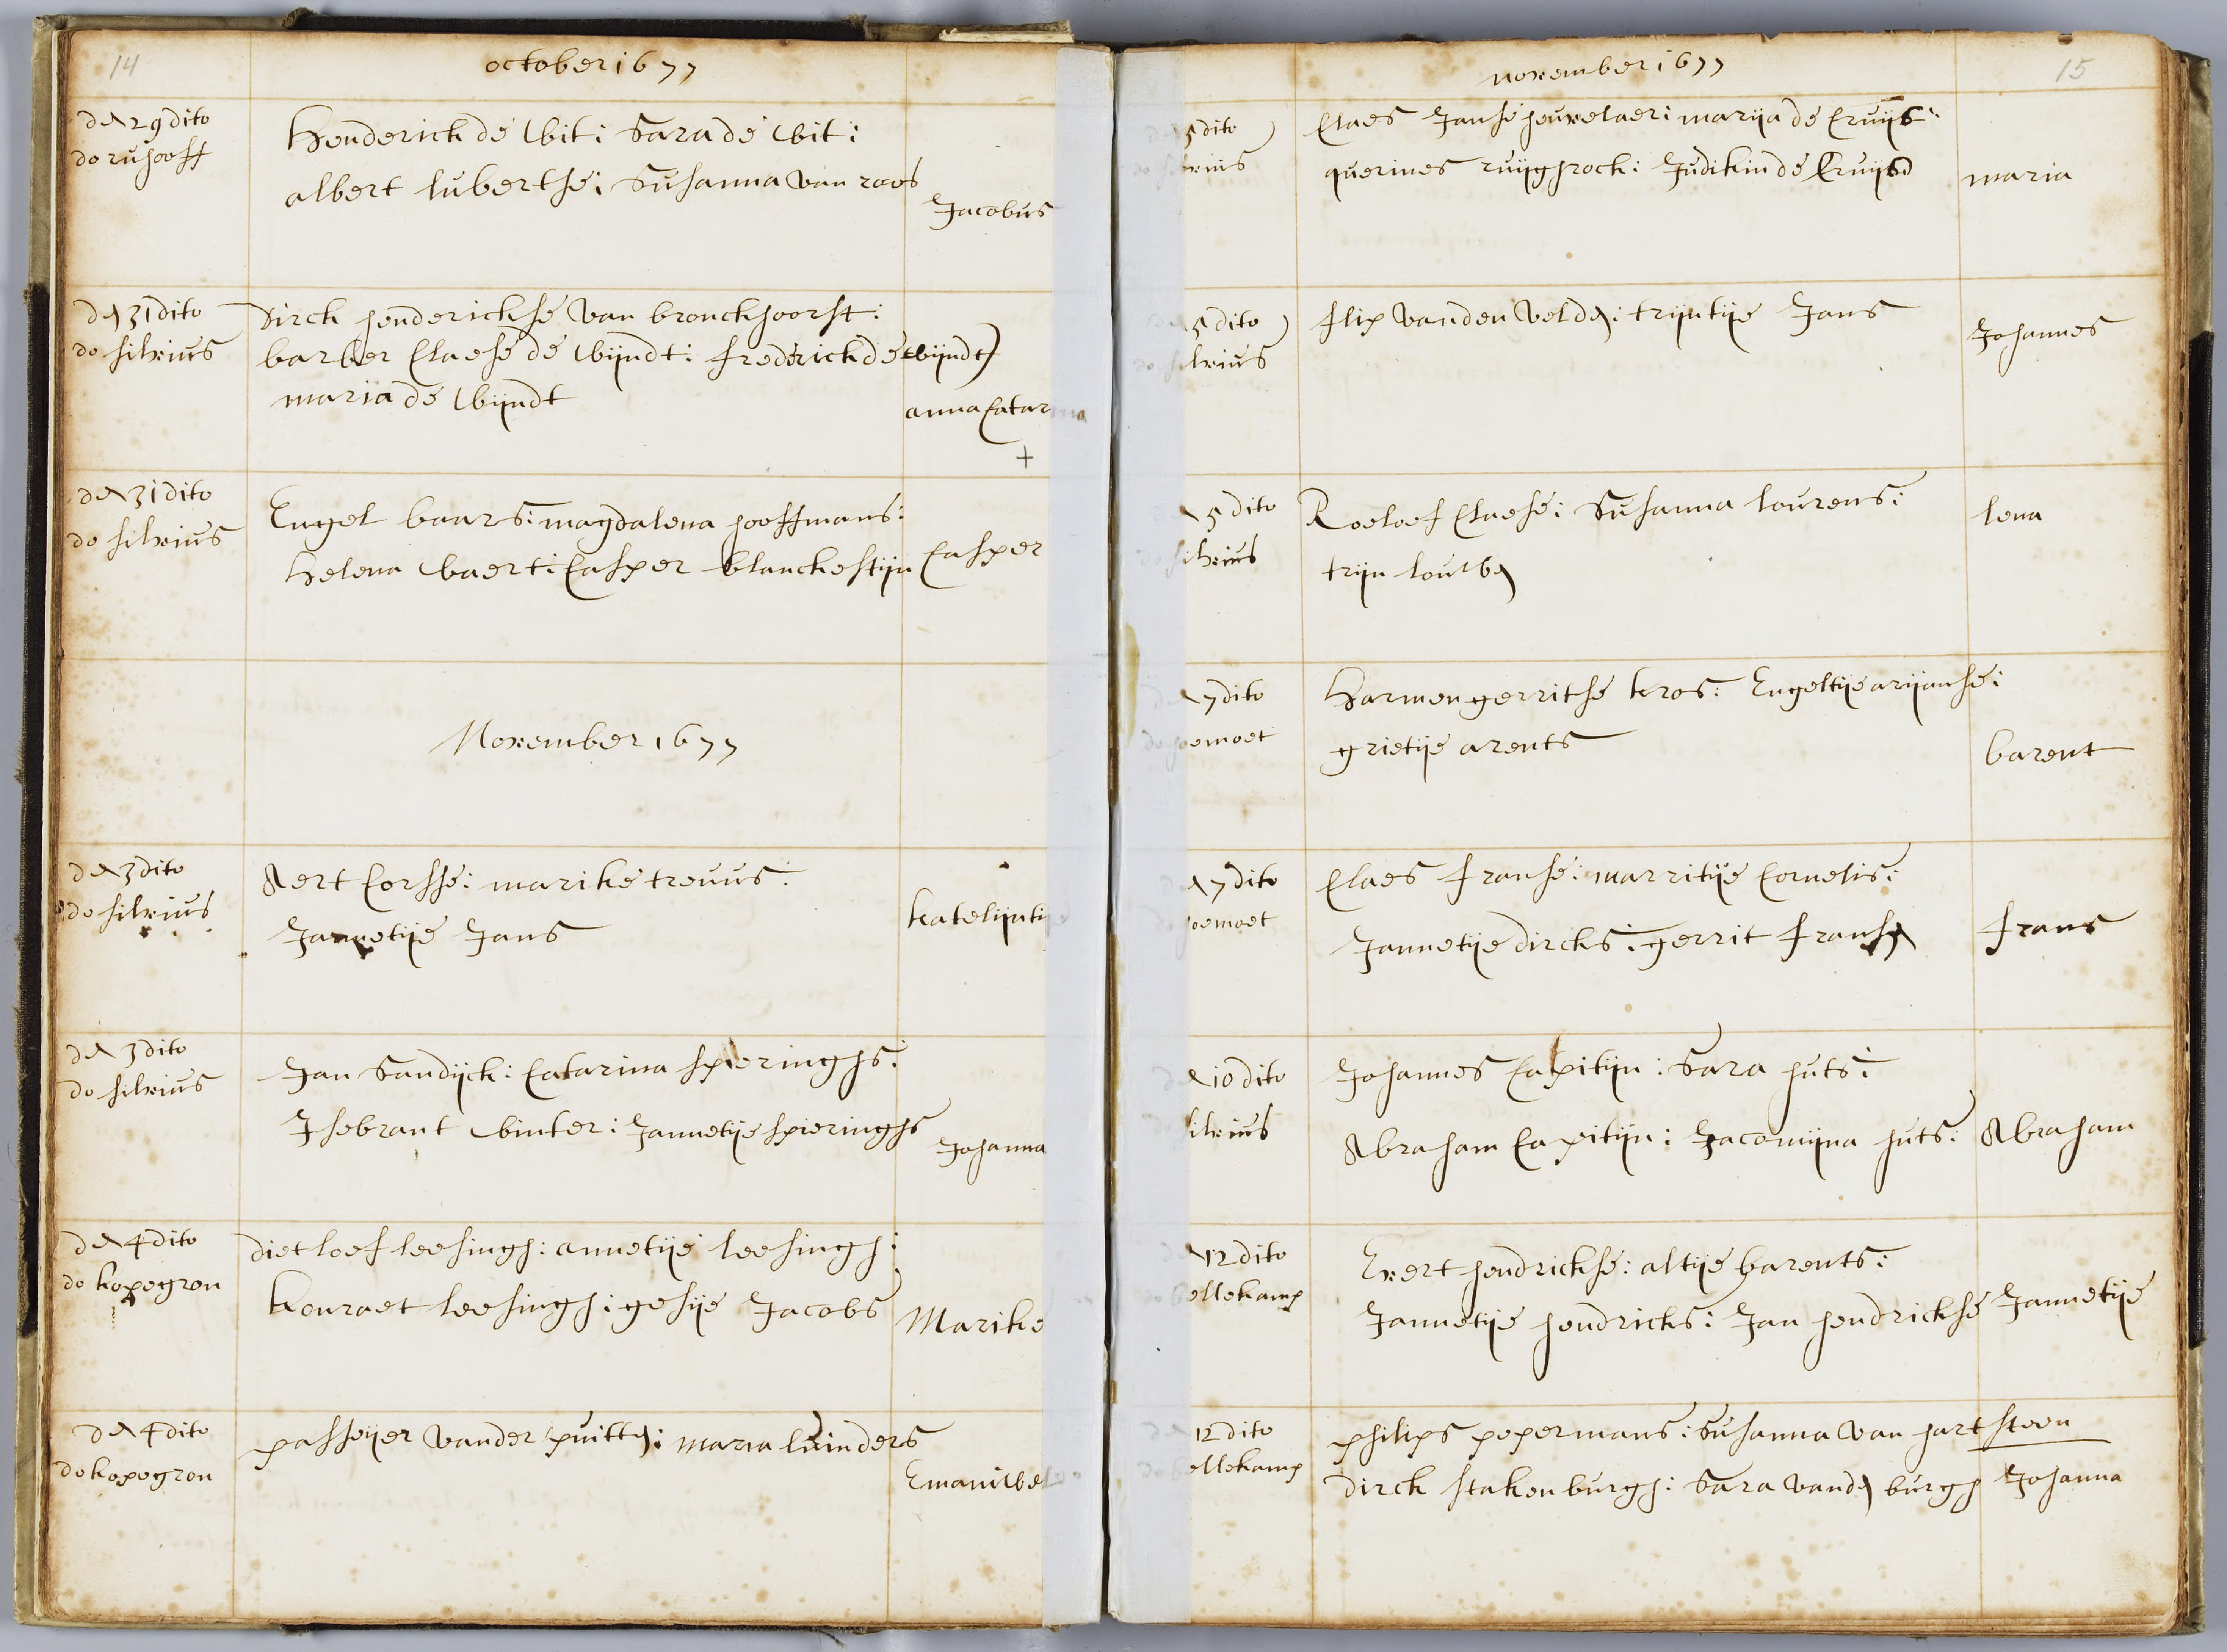 14
october 1677
den 29 dito
do ruhooff
Henderick de wit: Sara de wit:
albert lubertse: Susanna van roos
Jacobus
den 31 dito
do silvius
Dirck henderickse van bronckhoorst:
barber Claese de wijndt: frederick de wijndt
maria de wijndt
anna Catarina
den 31 dito
do silvius
Engel baars: magdalena hooffmans:
Helena waert: Casper blanckestijn
Casper
November 1677
den 3 dito
do silvius
Aert Corsse: marike treuus:
Jannetije Jans
katelijntije
den 3 dito
do silvius
Jan Sandijck: Catarina spieringhs:
Isebrant winter: Jannetije spieringhs
Johanna
den 4 dito
do kopegron
dietloef leesingh: annetije leesingh:
Konraet leesingh: gesije Jacobs
Marike
den 4 dito
do kopegron
passeijer vander puitten: maria luinders
Emanuwel
15
november 1677
den 5 dito
do silvius
Claes Janse heuvelaer: marija de Cruijs:
querines ruijghrock: Judikin de Cruijs
maria
den 5 dito
do silvius
flip vanden velden: trijntije Jans
Johannes
den 5 dito
do silvius
Roeloef Claese: Susanna lourens:
trijn louwen
lena
den 7 dito
do hoemoet
Harmen gerritse kros: Engeltije arijanse:
grietije arents
barent
den 7 dito
do hoemoet
Claes franse: marritije Cornelis:
Jannetije dircks: gerrit fransen
frans
den 10 dito
do silvius
Johannes Capitijn: Sara huts:
Abraham Capitijn: Jacomijna huts:
Abraham
den 12 dito
do bellekamp
Evert hendrickse: altije barents:
Jannetije hendricks: Jan hendrickse
Jannetije
den 12 dito
do bellekamp
philips pepermans: Susanna van hartsteen
dirck stakenburgh: Sara vanden burgh
Johanna